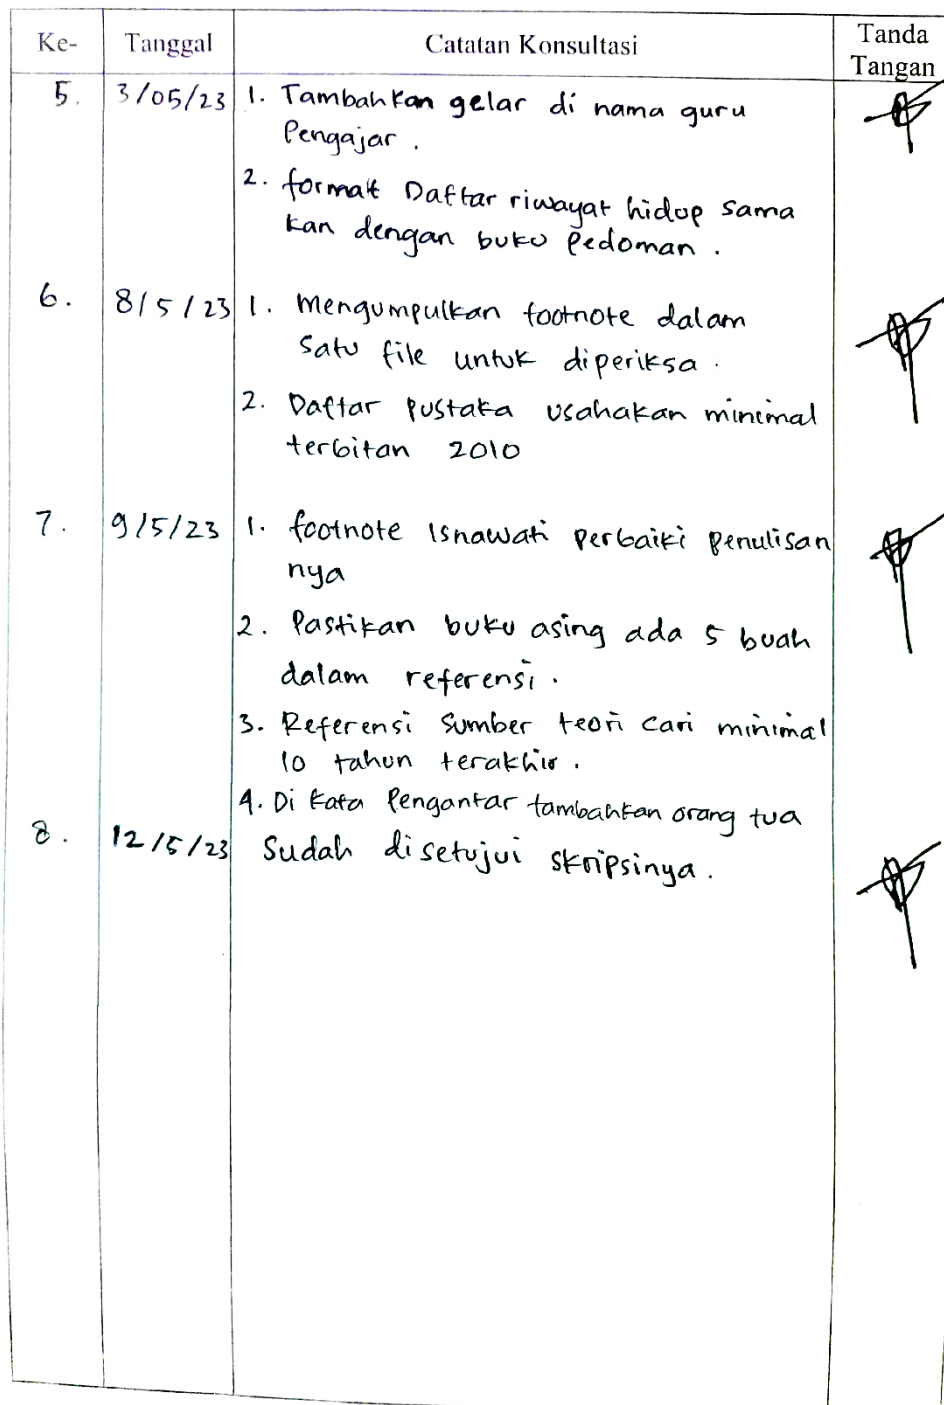 Ke- Tanggal Catatan Konsultasi Tanda Tangan
5. 3/05/23 1. Tambahkan gelar di nama guru
Pengajar.
2. format Daftar riwayat hidup sama
kan dengan buku Pedoman.
6. 8/5/23 1. Mengumpulkan footnote dalam
Satu file untuk diperiksa.
2. Daftar Pustaka usahakan minimal
terbitan 2010
7. 9/5/23 1. footnote Isnawati Perbaiki Penulisan
nya
2. Pastikan buku asing ada 5 buah
dalam referensi.
3. Referensi Sumber teori cari minimal
10 tahun terakhir.
4. Di Kata Pengantar tambahkan orang tua
8. 12/5/23 Sudah disetujui skripsinya.